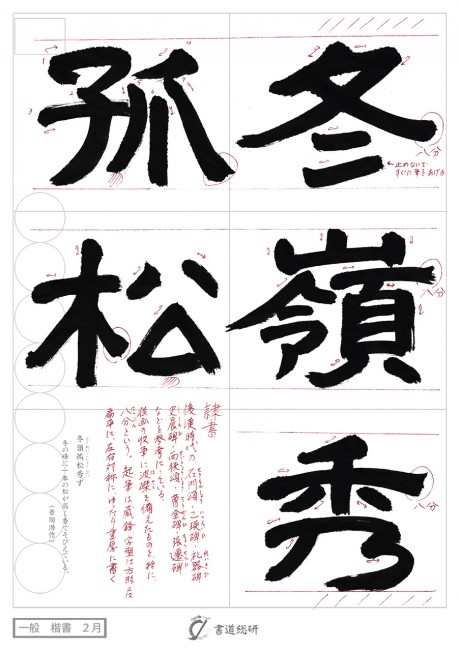 冬嶺秀
孤松
八分
止めないで
すぐに筆をあげる
八分
八分
隷書
後漢時代の石門頌・乙瑛碑・礼器碑
史晨碑・西狭頌・曹全碑・張遷碑
などを参考にしている。
横画の収筆に波磔を備えたものを特に、
八分という。起筆は蔵鋒 字型は方形又は
扁平に左右対称に、ゆったり重厚に書く
冬嶺孤松秀ず
冬の嶺に一本の松が高く秀だそびえている。
(晋 陶潜作)
一般 楷書 2月
書道総研